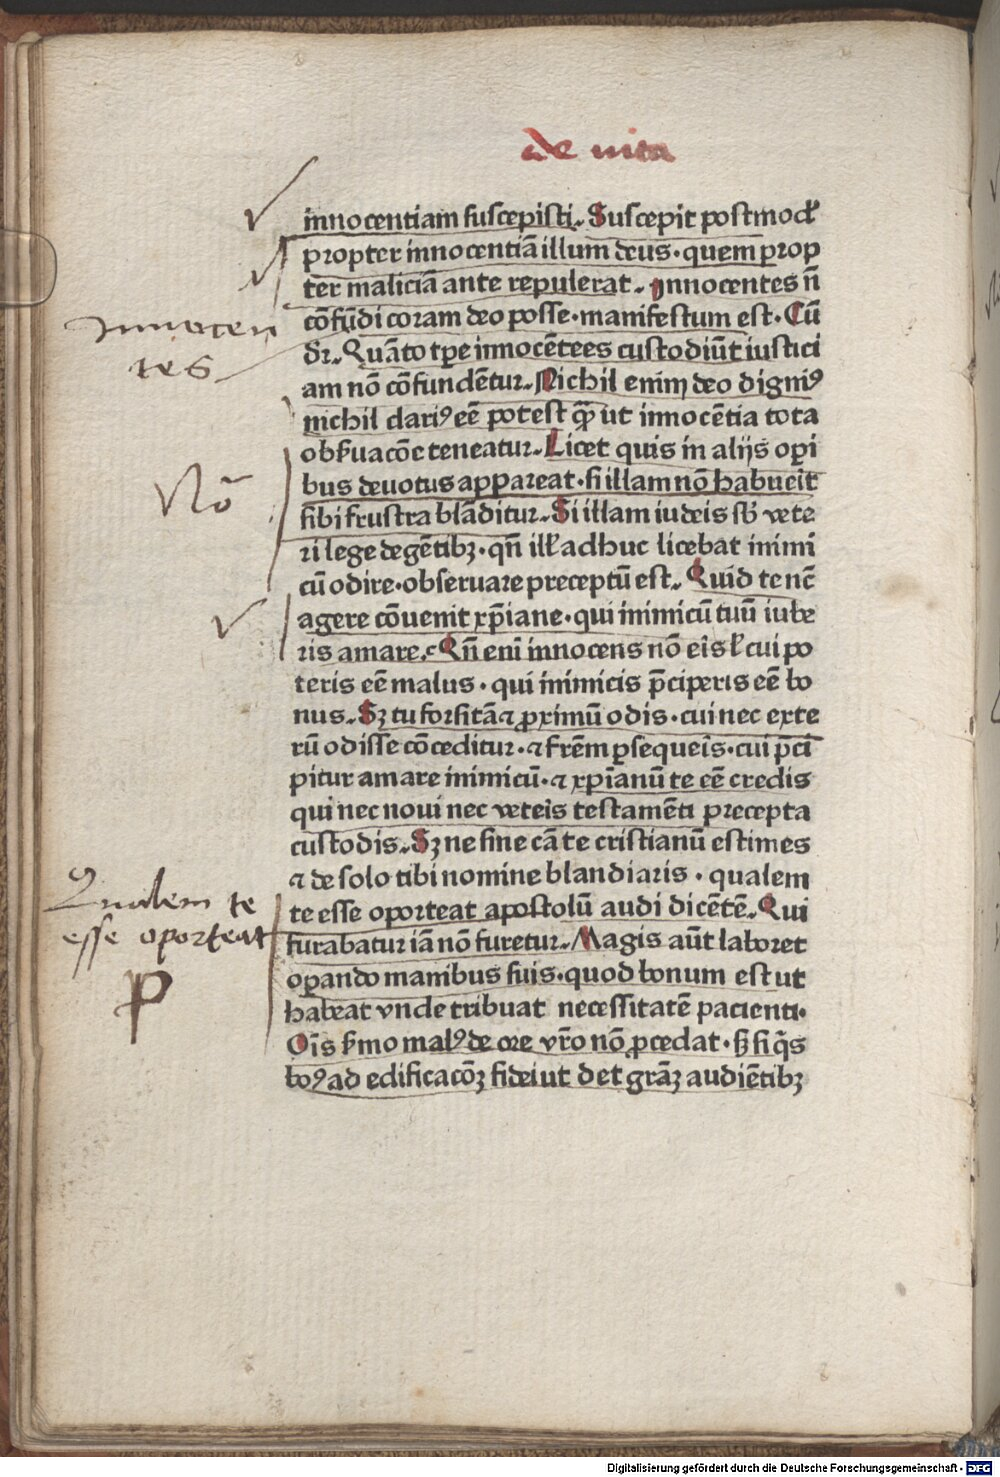 de uita
innocentiam suscepisti. Suscepit postmodū
propter innocentiā illum deus · quem prop
ter maliciā ante repulerat. Innocentes n̄
cōfūdi coram deo posse · manifestum est · Cū
dr̄. Quāto tꝑe innocētees custodiūt iustici
am nō cōfundētur. Nichil enim deo digniꝰ
nichil clariꝰ eē potest q̄ꝫ ut innocētia tota
obẜuacōe teneatur. Licet quis in alijs oꝑi
bus deuotus appareat · si illam nō habueit
sibi frustra blāditur. Si illam iudeis sb̄ vete
ri lege degētibꝫ · qn̄ ill' adhuc licebat inimi
cū odire · obseruare preceptū est. Quid te nc̄
agere cōuenit xp̄iane · qui inimicū tuū iube
ris amare. Qn̄ eni innocens nō eis ł cui po
teris eē malus · qui inimicis p̄ciperis eē bo
nus. Sꝫ tu forsitā ⁊ ꝓximū odis · cui nec exte
rū odisse cōceditur · ⁊ frēm ꝑsequeis · cui p̄ci
pitur amare inimicū · ⁊ xp̄ianū te eē credis
qui nec noui nec veteis testamēti precepta
custodis. Sꝫ ne sine cā te cristianū estimes
⁊ de solo tibi nomine blandiaris · qualem
te esse oporteat apostolū audi dicētē. Qui
furabatur iā nō furetur. Magis aūt laboret
oꝑando manibus suis · quod bonum est ut
habeat vnde tribuat necessitatē pacienti ·
Oīs ẜmo malꝰ de ore vr̄o nō ꝓcedat · sꝫ si q̄s
boꝰ ad edificacōꝫ fidei ut det grāꝫ audiētibꝫ
Innocen
tes
Nō
Qualem te
esse oporteat
p
Digitalisierung gefördert durch die Deutsche Forschungsgemeinschaft - DFG